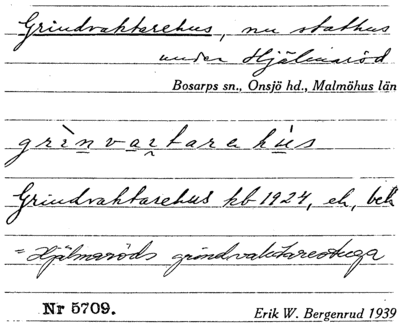 Grindvaktarehus, nu stathus
under Hjälmaröd
Bosarps sn., Onsjö hd., Malmöhus län
grìnvaɪtarahús
Grindvaktarehus kb 1924, ek, bek
= Hjälmaröds grindvaktarestuga
Nr 5709.
Erik W. Bergenrud 1939